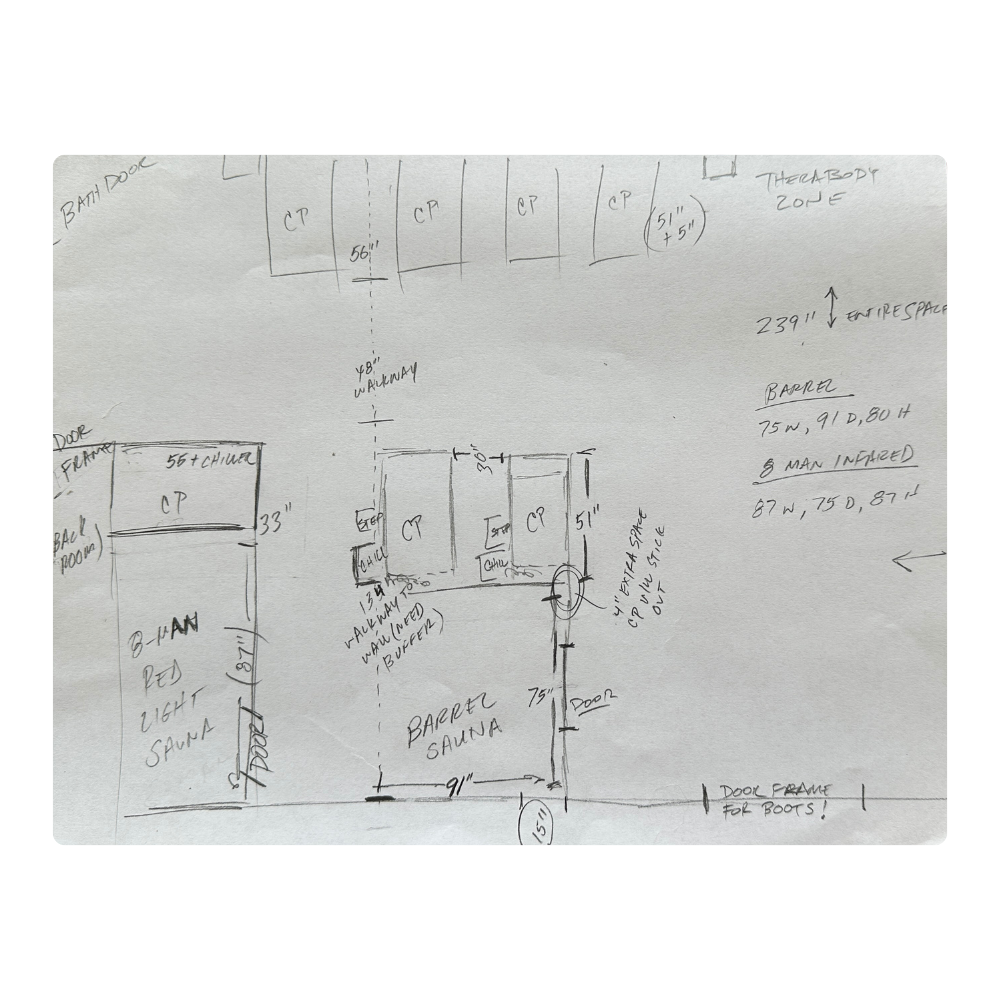 BATH DOOR
CP
CP
CP
CP
(51"
+ 5")
THERABODY
ZONE
56"
239" ↕ ENTIRE SPACE
48"
WALKWAY
BARREL
75 W, 91 D, 80 H
8 MAN INFARED
87 W, 75 D, 87 H
DOOR
FRAME
BACK
ROOM)
55 + CHILLER
CP
33"
30"
STEP
CP
CHILL
STEP
CP
CHILL
51"
4" EXTRA SPACE
CP WILL STICK
OUT
134"
WALKWAY TO
WALL (NEED
BUFFER)
8-MAN
RED
LIGHT
SAUNA
(87")
DOOR
BARREL
SAUNA
75"
DOOR
91"
15"
DOOR FRAME
FOR BOOTS!